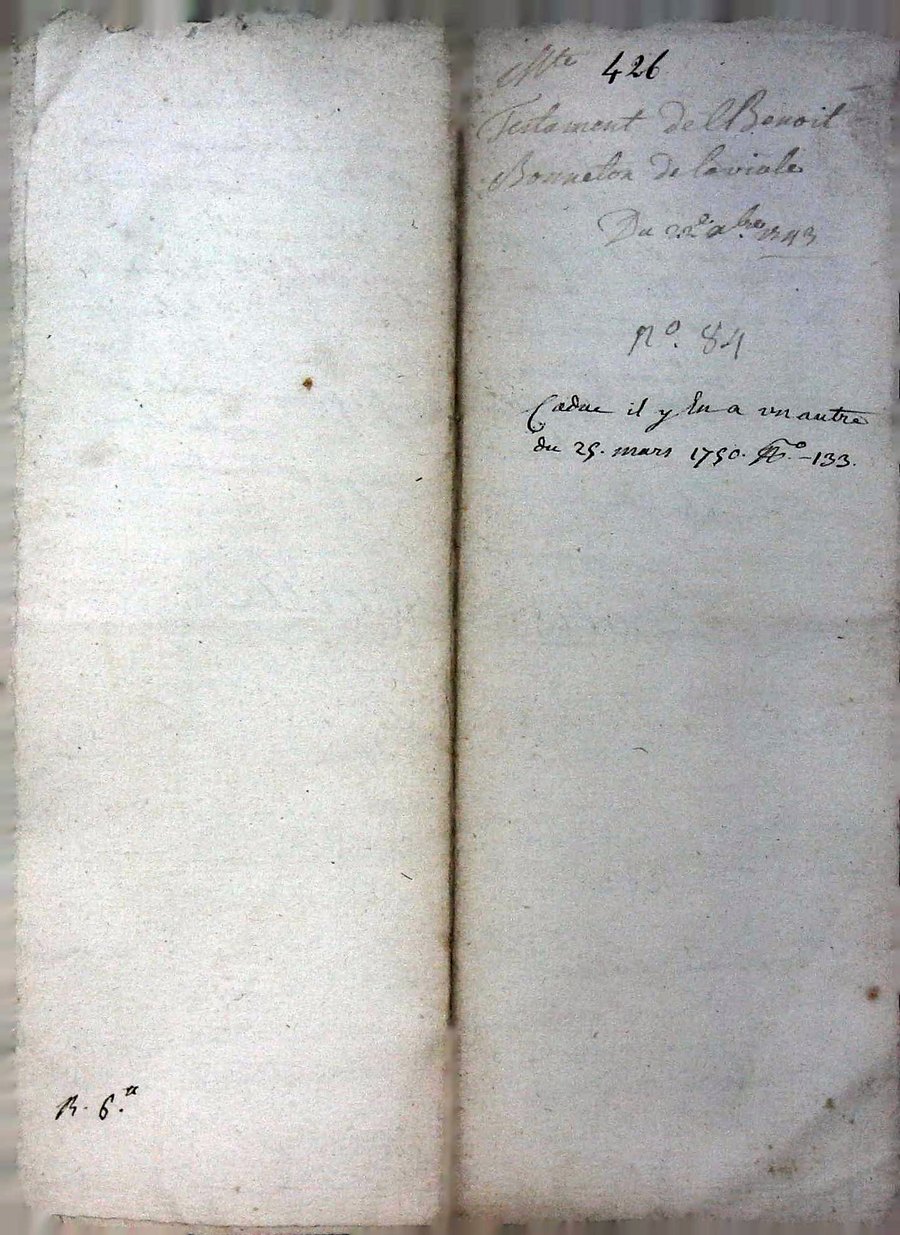 426
Testament de Benoit
Bonneton de laviale
Du 22e 1743
No. 84
Caduc il y En a vn autre
du 25. mars 1750. No.-133.
R. 6.tt